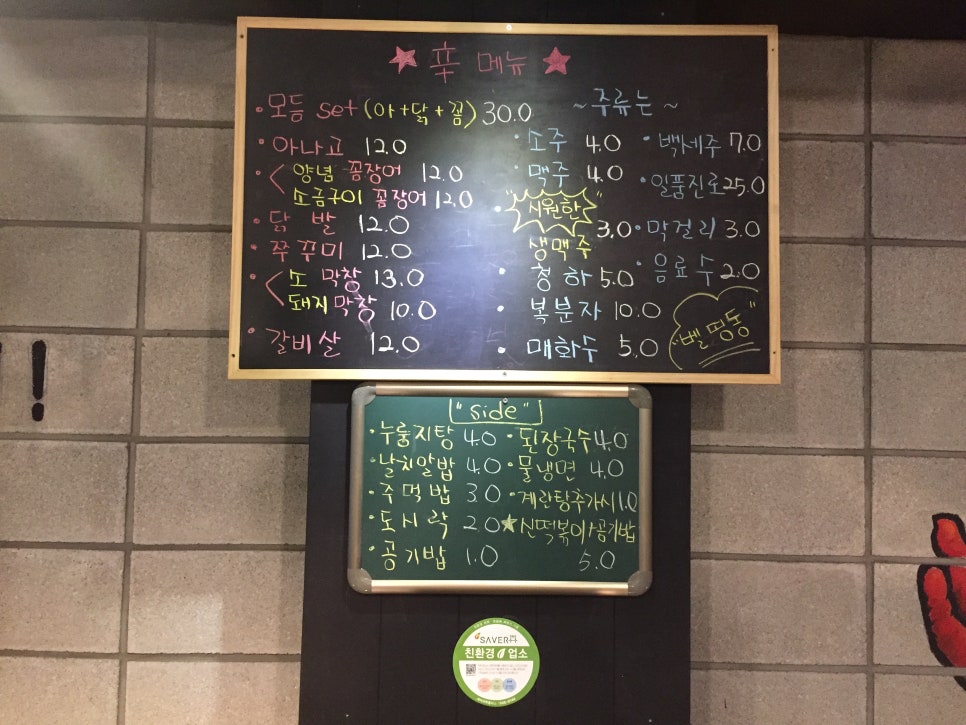 辛 메뉴
모듬 set (아+닭+꼼) 30.0
아나고 12.0
양념 꼼장어 12.0
소금구이 꼼장어 12.0
닭 발 12.0
쭈꾸미 12.0
소 막창 13.0
돼지 막창 10.0
갈비살 12.0
~주류는~
소주 4.0
맥주 4.0
"시원한"
생맥주 3.0
청하 5.0
복분자 10.0
매화수 5.0
백세주 7.0
일품진로 25.0
막걸리 3.0
음료수 2.0
"벨 띵동"
"side"
누룽지탕 4.0
날치알밥 4.0
주먹밥 3.0
도시락 2.0
공기밥 1.0
된장국수 4.0
물냉면 4.0
계란탕추가시 1.0
신떡볶이+공기밥
5.0
!
SAVER
친환경 업소